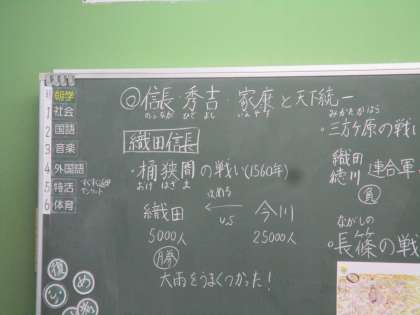 朝学
1 社会
2 国語
3 音楽
4 外国語
5 特活
6 体育
◎信長・秀吉・家康と天下統一
のぶなが ひでよし いえやす
織田信長
・桶狭間の戦い(1560年)
おけはざま
織田 ← 今川
攻める
VS
5000人 25000人
勝
大雨をうまくつかった!
みかたがはら
・三方ヶ原の戦い
織田
徳川 連合軍
負
ながしの
・長篠の戦